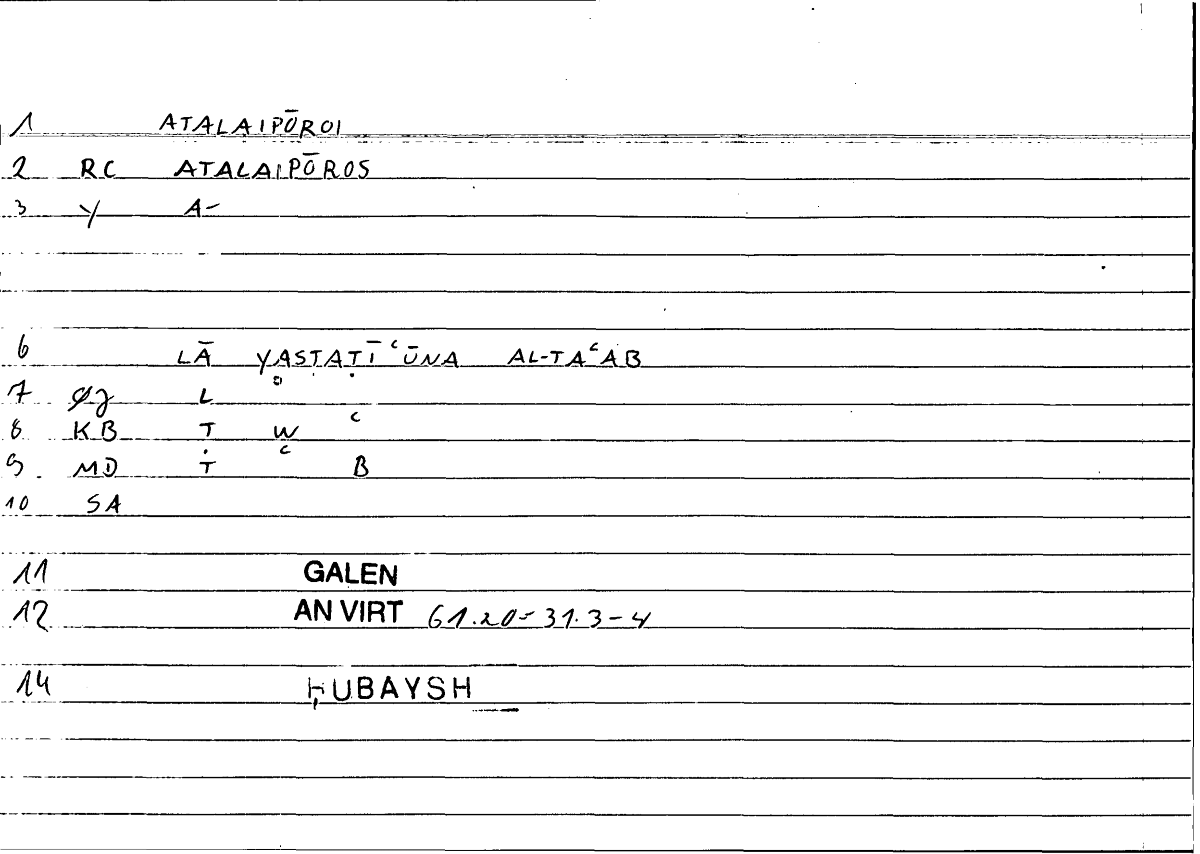 1 ATALAIPŌROI
2 RC ATALAIPŌROS
3 Y A-
6 LĀ YASTAṬĪʿŪNA AL-TAʿAB
7 ØJ L
8 KB T W ʿ
9 MD Ṭ ʿ B
10 SA
11 GALEN
12 AN VIRT 61.20-31.3-4
14 ḤUBAYSH